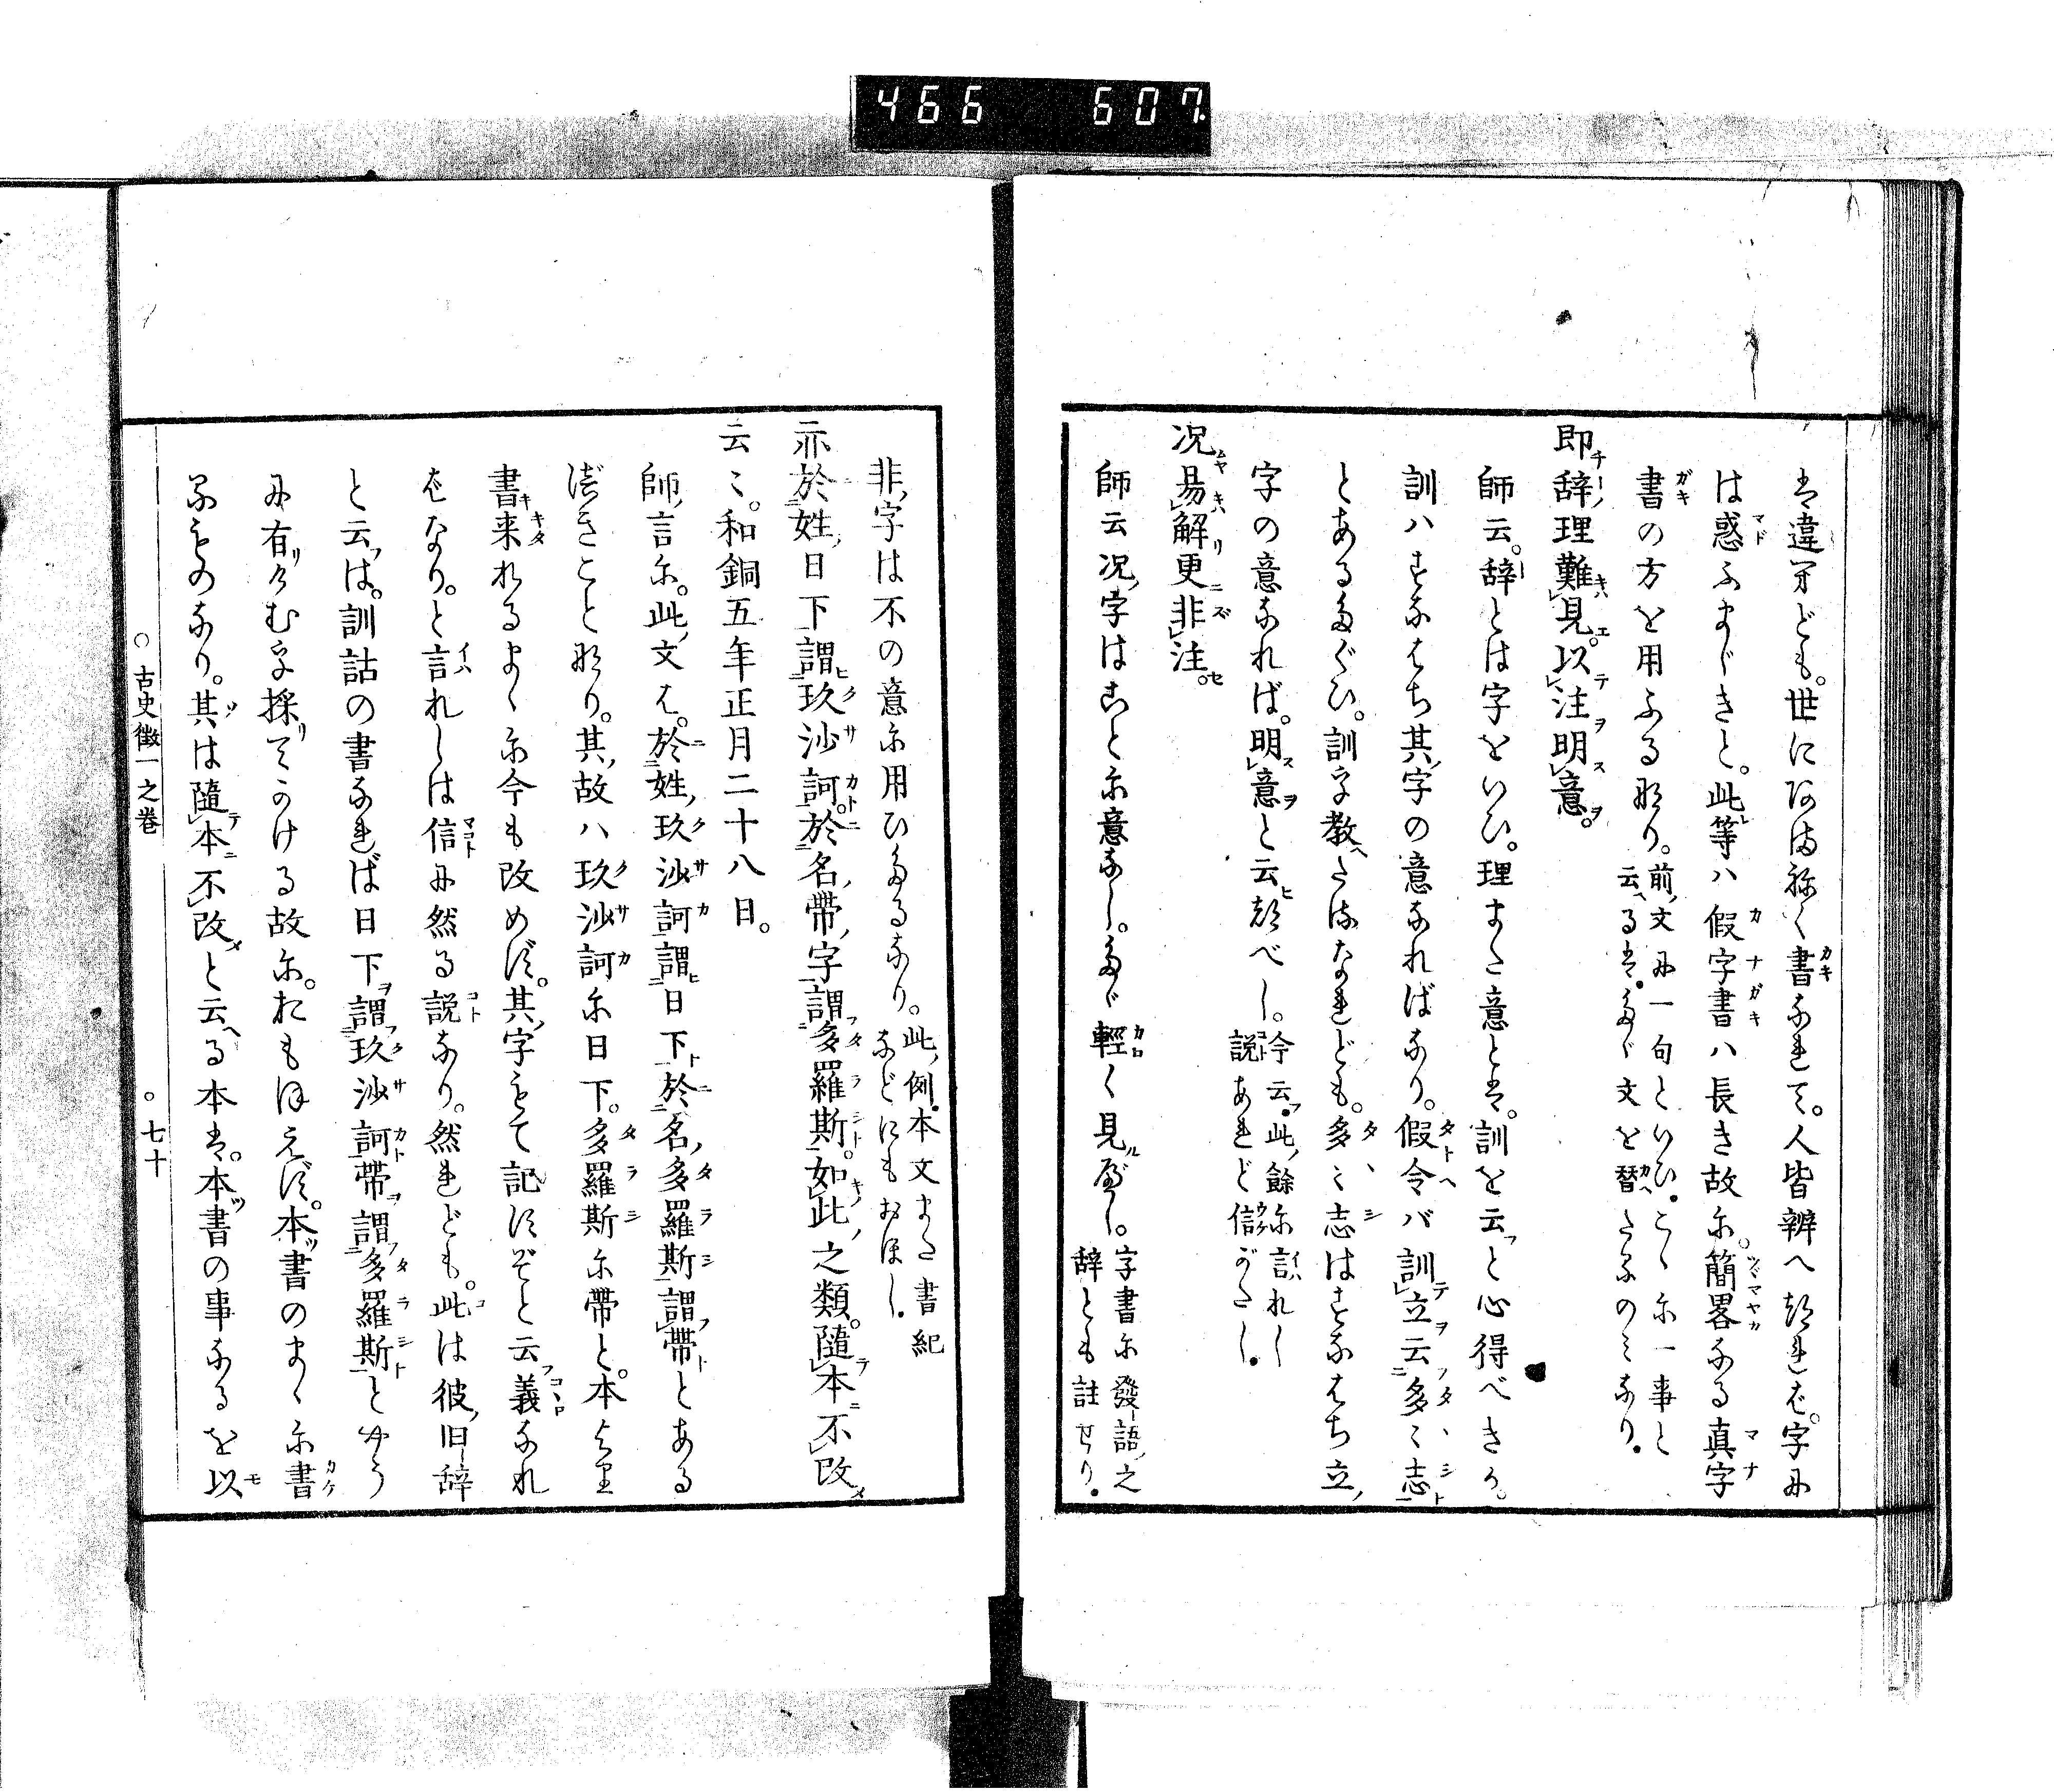 466 607
は違へども。世にあまねく書なれて。人皆辨へたれば。字に
は惑ふまじきと。此等ハ假字書ハ長き故に。簡畧なる真字
書の方を用ふる也り。前文に一句といひ。こゝに一事と
云へるは。たゞ文を替へたるのみなり。
即辞理難見。以注明意。
師云。辞とは字をいひ。理また意とは。訓を云と心得べきか。
訓ハすなはち其字の意なればなり。假令バ訓立云多々志
とあるたぐひ。訓字教へたるなれども。多々志はすなはち立
字の意なれば。明意と云ひつべし。今云。此餘に言れし
説あれど信がたし。
况易解更非注。
師云况字はこと尓意なし。たゞ輕く見ルべし。字書尓發語之
辞とも註せり。
非字は不の意尓用ひたるなり。此例本文また書紀
などにもおほし。
亦於姓日下謂玖沙訶。於名帶字謂多羅斯。如此之類。隨本不改
云々。和銅五年正月二十八日。
師言尓。此文は。於姓玖沙訶謂日下於名多羅斯謂帶とある
べきこと也り。其故ハ玖沙訶尓日下。多羅斯尓帶と。本より
書来れるまゝ尓今も改めず。其字もて記すぞと云義なれ
ばなり。と言れしは信に然る説なり。然れども。此は彼旧辞
と云は。訓詁の書なれば日下謂玖沙訶帶謂多羅斯とやう
に有けむ字採てかける故尓。おもほえず。本書のまゝ尓書
るものなり。其は隨本不改と云へる本は。本書の事なるを以
○古史徴一之巻
○七十